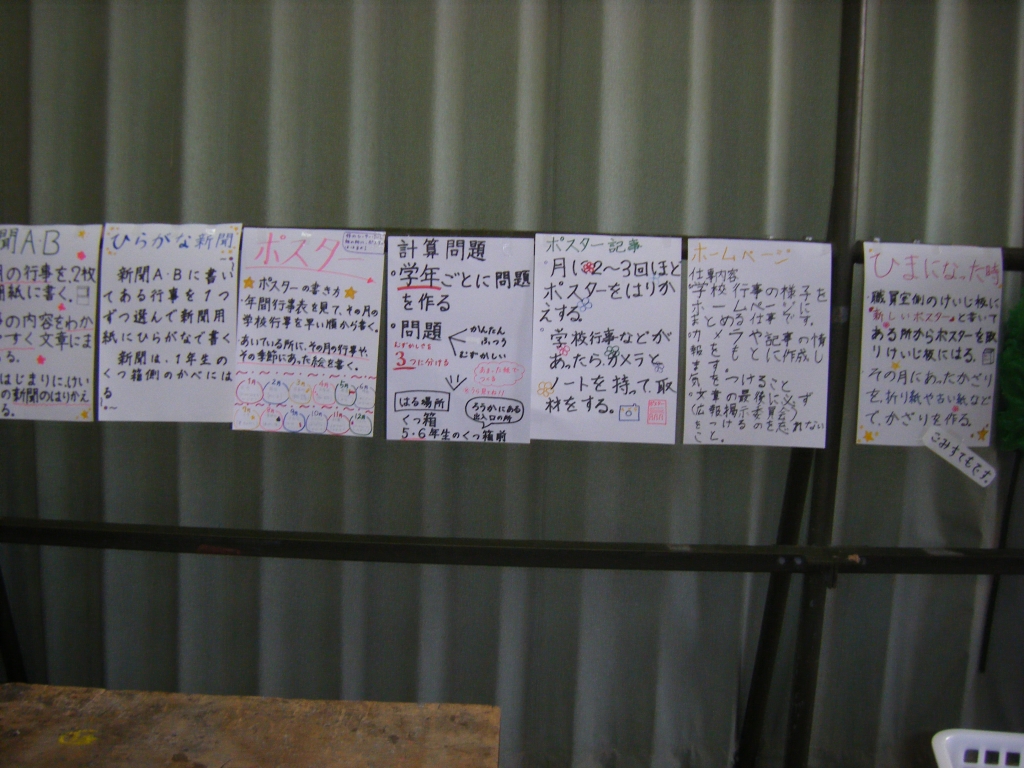 聞A·B
の行事を、2枚
用紙に書く。
の内容をわか
やすく文章にま
る。
はじまりに、けい
の新聞のはりかえ
る。
ひらがな新聞
新聞A·Bに書い
てある行事を1つ
ずつ選んで新聞用
紙にひらがなで書く
新聞は、1年生の
くつ箱側のかべには
る。
ポスター
★ポスターの書き方★
年間行事表を見て、その月の
学校行事を早い順から書く。
あいている所に、その月の行事や、
その季節にあった絵を書く。
1月 2月 3月 4月 5月 6月
7月 8月 9月 10月 11月 12月
計算問題
・学年ごとに問題
を作る
・問題
かんたん
ふつう
むずかしい
3つに分ける
はる場所
くつ箱
5·6年生のくつ箱前
ろうかにある
出入口の所
ポスター記事
・月に2～3回ほど
ポスターをはりか
えする。
・学校行事などが
あったらカメラと
ノートを持って取
材をする。
ホームページ
仕事内容
・学校行事の様子を
ホームページに
まとめる仕事です。
・カメラや記事の情
報をもとに作成し
ます。
気をつけること
・文章の最後に必ず
「広報掲示委員会」
をつけるのを忘れない
こと。
ひまになった時
・職員室側のけいじ板に
「新しいポスター」と書いて
ある所からポスターを取
りけいじ板にはる。
・その月にあったかざり
を、折り紙や古い紙など
で、かざりを作る。
ごみすてもです。